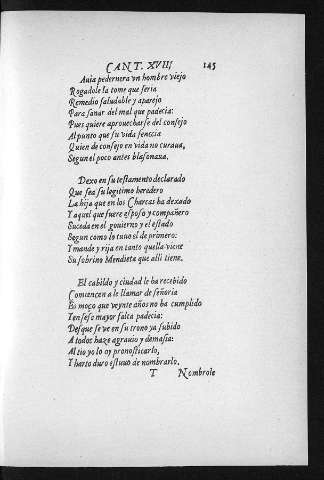 CANT. XVIII 145
Auia pedernera vn hombre viejo
Rogadole la tome que seria
Remedio saludable y aparejo
Para sanar del mal que padecia:
Pues quiere aprouecharse del consejo
Al punto que su vida fenecia
Quien de consejo en vida no curaua,
Segun el poco antes blasonaua.
Dexo en su testamento declarado
Que sea su legitimo heredero
La hija que en los Charcas ha dexado
Y aquel que fuere esposo y compañero
Suceda en el gouierno y el estado
Segun como lo tuuo el de primero:
Y mande y rija en tanto quella viene
Su sobrino Mendieta que alli tiene.
El cabildo y ciudad le ha recebido
Comiencen a le llamar de señoria
Es moço que veynte años no ha cumplido
Y en seso mayor falta padecia:
Desque se ve en su trono ya subido
A todos haze agrauio y demasia:
Al tio yo lo oy pronosticarlo,
Y harto duro estuuo de nombrarlo.
T Nombrole